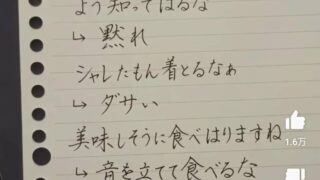 よう知ってはるな
↳ 黙れ
シャレたもん着とるなぁ
↳ ダサい
美味しそうに食べはりますね
↳ 音を立てて食べるな
1.6万